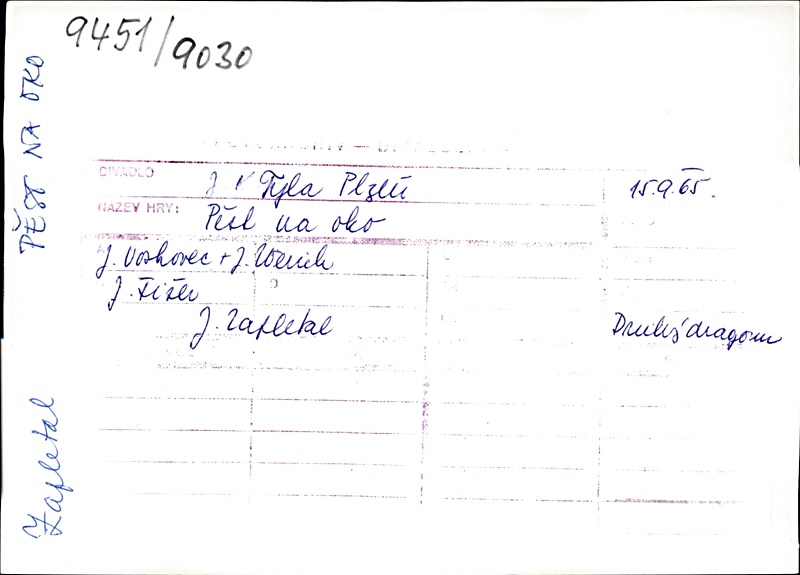 9451/9030
PĚST NA OKO
DIVADLO J. K Tyla Plzeň 15.9.65.
NÁZEV HRY: Pěst na oko
J. Voskovec + J. Werich
J. Fišer
J. Zapletal Druhý dragoun
Zapletal